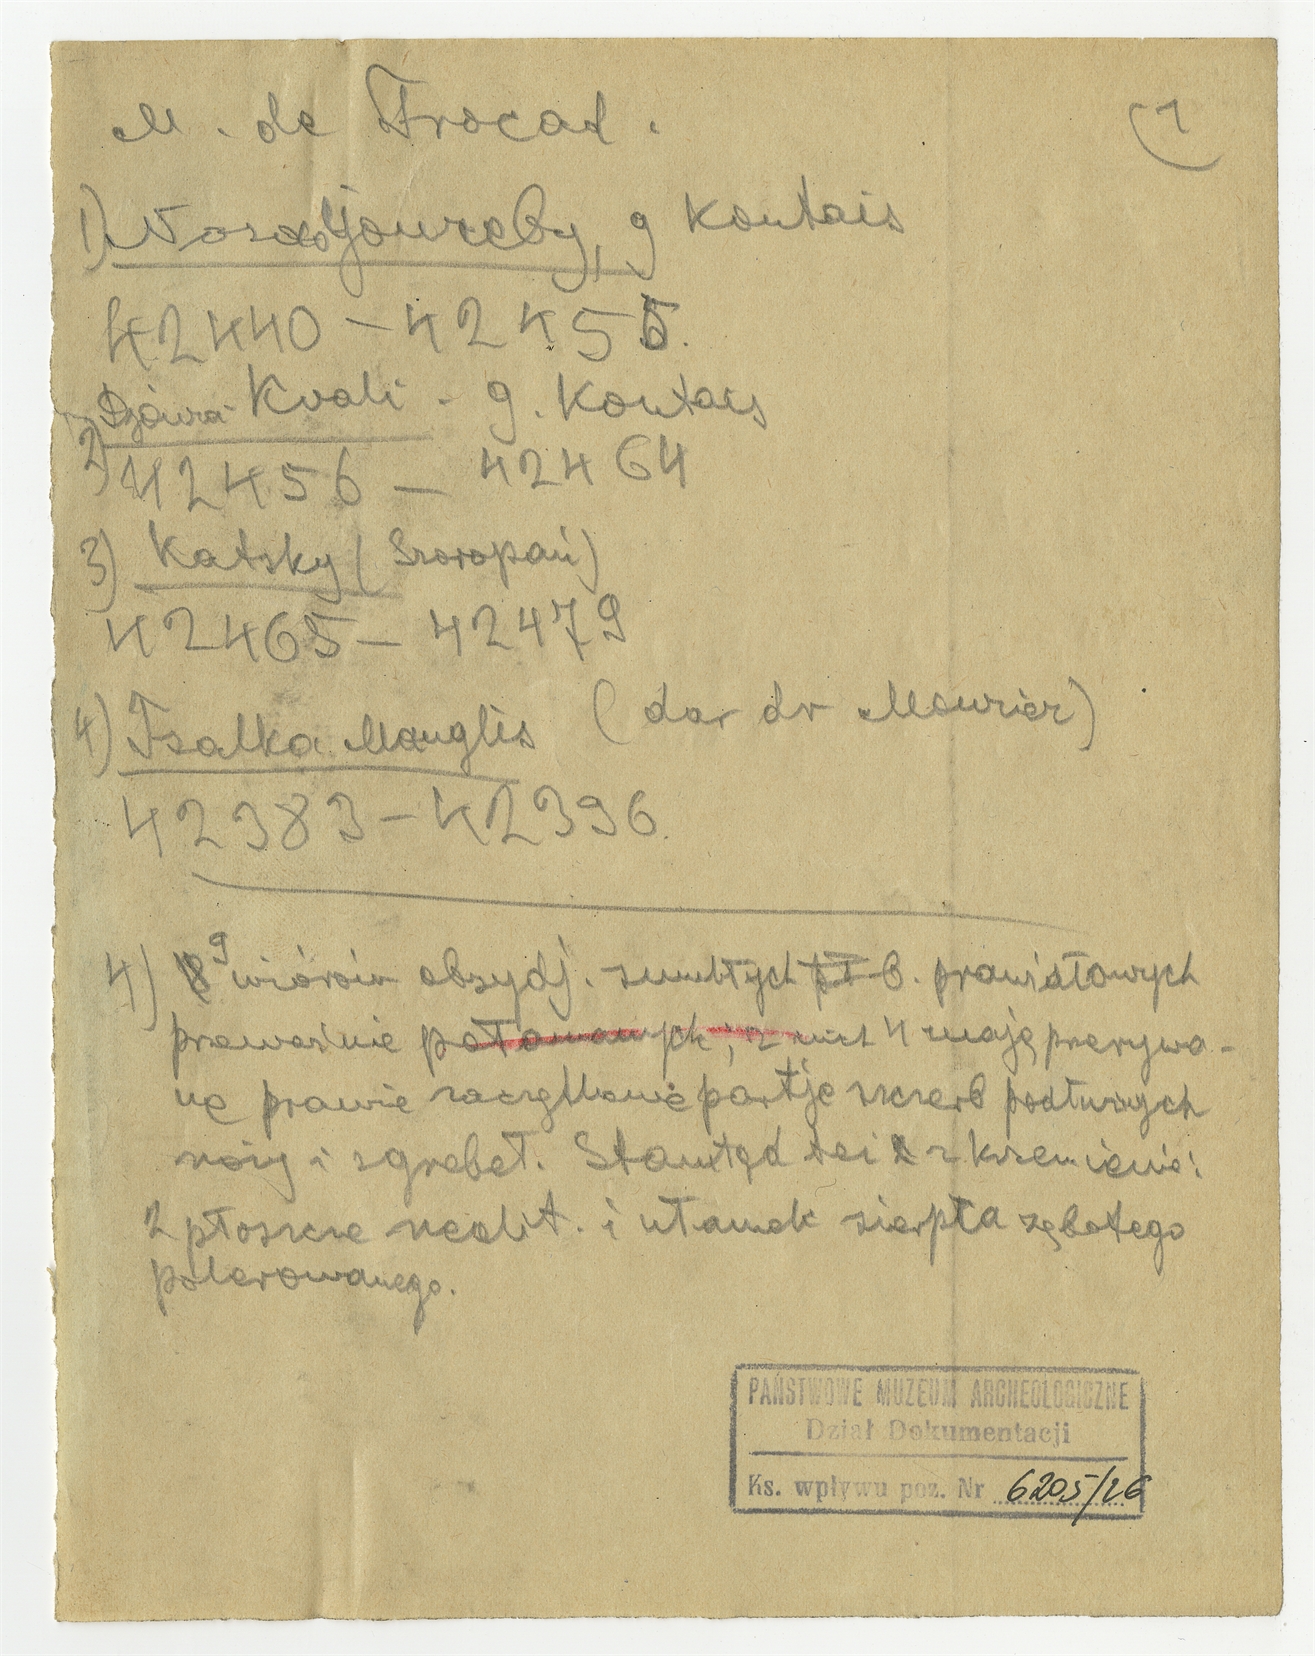 M. de Trocad.
1
1) Nosadjoureby, g Koutais
42440 – 42455.
Dzówa-Kvali - g. Koutais
2) 42456 – 42464
3) Katsky (Szoropań)
42465 – 42479
4) Tsalka Manglis (dar dr Mourier)
42383 – 42396.
4) 9 wiórów obsydj. smukłych b. prawidłowych
przeważnie połamanych; z nich 4 mają przerywa-
nę prawie partje szczerb podłużnych
noży i zgrzebeł. Stamtąd też z krzemienia:
2 płoszcze neolit. i ułamek sierpła zębatego
polerowanego.
PAŃSTWOWE MUZEUM ARCHEOLOGICZNE
Dział Dokumentacji
Ks. wpływu poz. Nr 6205/26